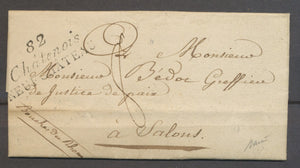 82
Châtenois
NEUFCHATEAU
A Monsieur
Monsieur Bédoc Greffier
de Justice de paix
à Salons.
Bouches du Rhône